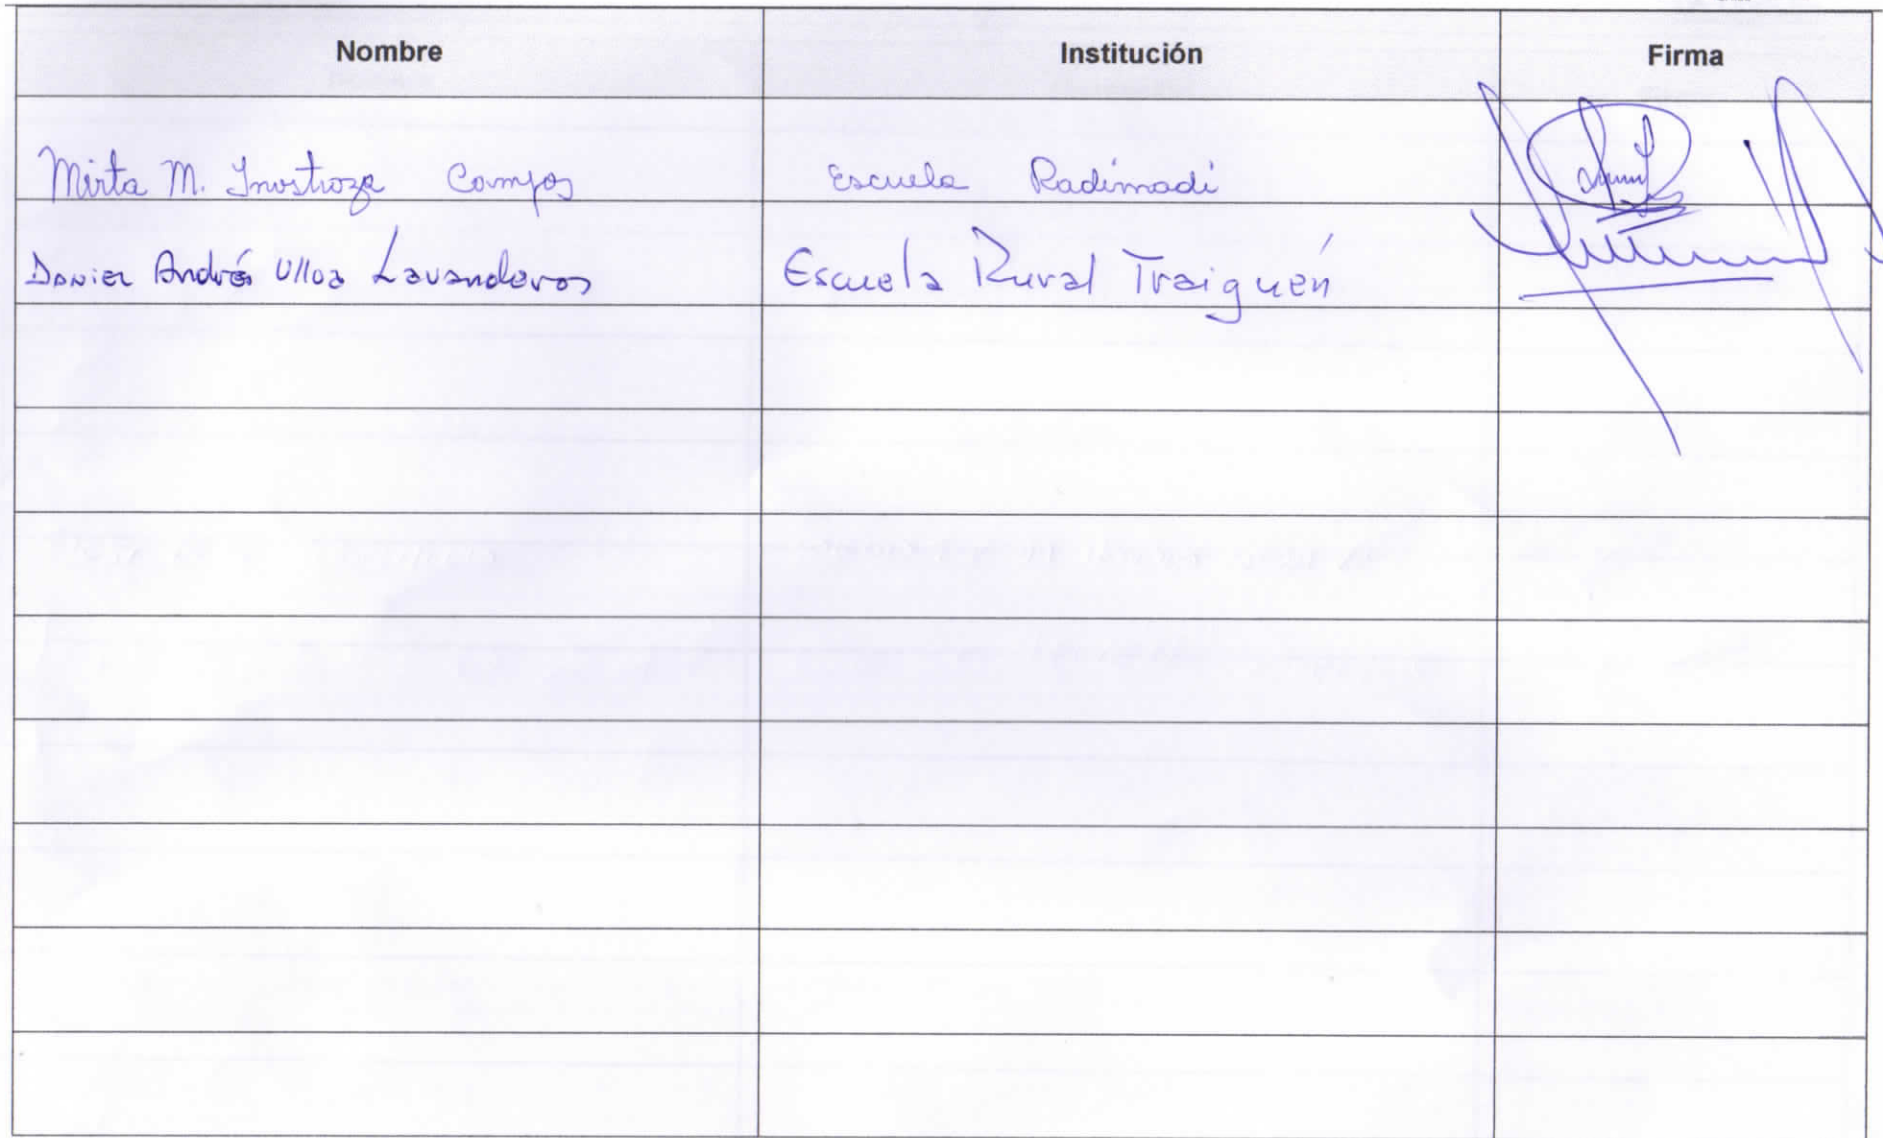 Nombre Institución Firma
Mirta M. Inostroza Campos Escuela Radimadi
Daniel Andrés Ulloa Lavanderos Escuela Rural Traiguén